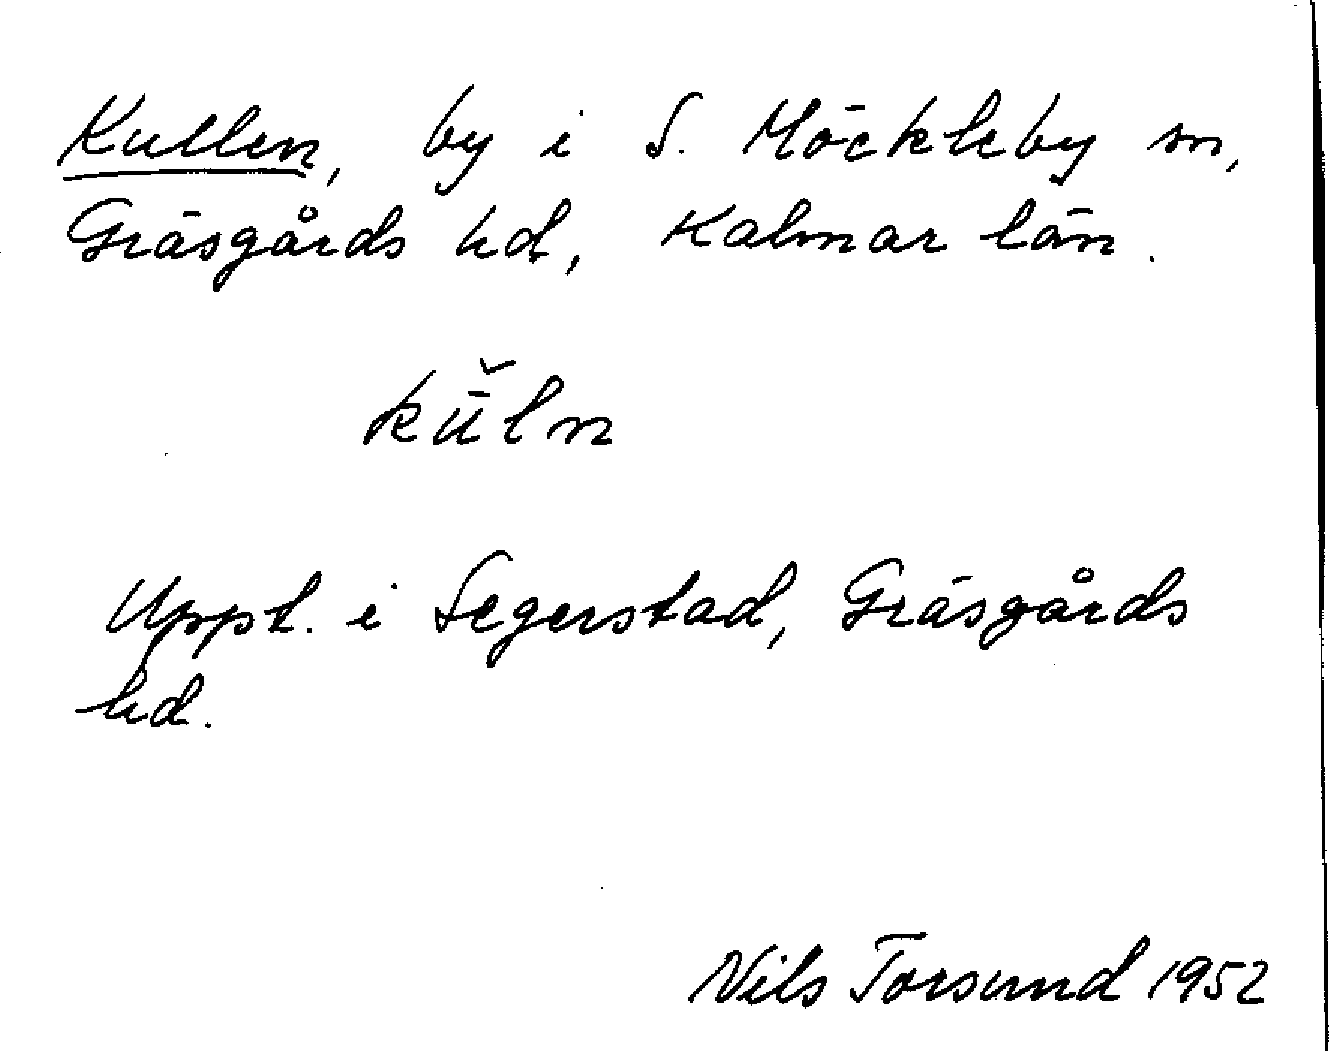 Kullen, by i S. Möckleby sn,
Gräsgårds hd, Kalmar län.
kŭ̄ln
Uppt. i Segerstad, Gräsgårds
hd.
Nils Torsund 1952